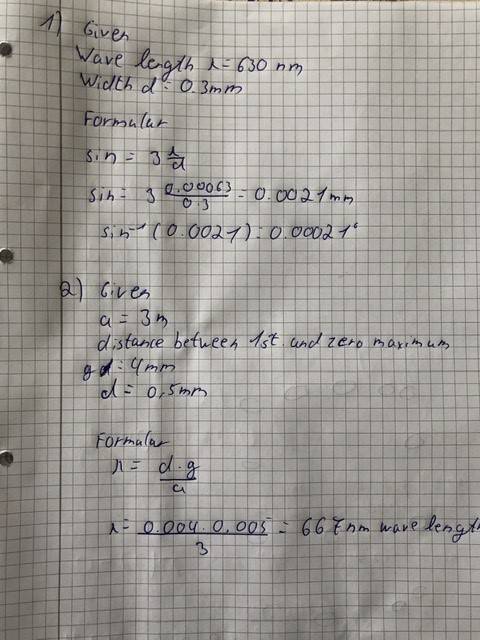 1) Given
Wave length λ = 630 nm
Width d = 0.3mm
Formular
sin = 3 λ/d
sin = 3 0.00063/0.3 = 0.0021mm
sin⁻¹ (0.0021) = 0.00021°
2) Given
a = 3m
distance between 1st and zero maximum
g = 4mm
d = 0,5mm
Formular
λ = d·g/a
λ = 0.004·0.005/3 = 667nm wave length